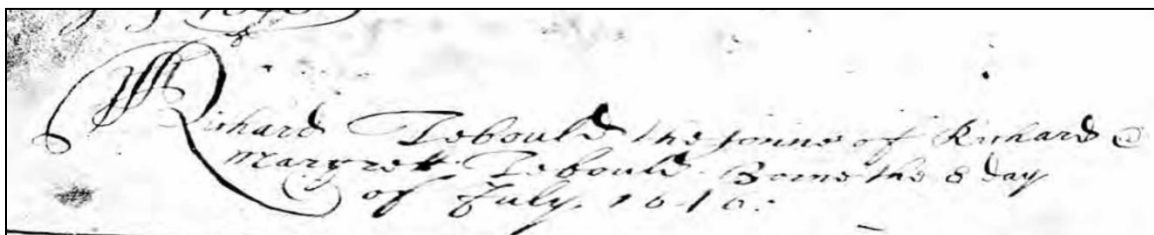 Richard Tebould the sonne of Richard &
Margrett Tebould Borne the 8 day
of July.